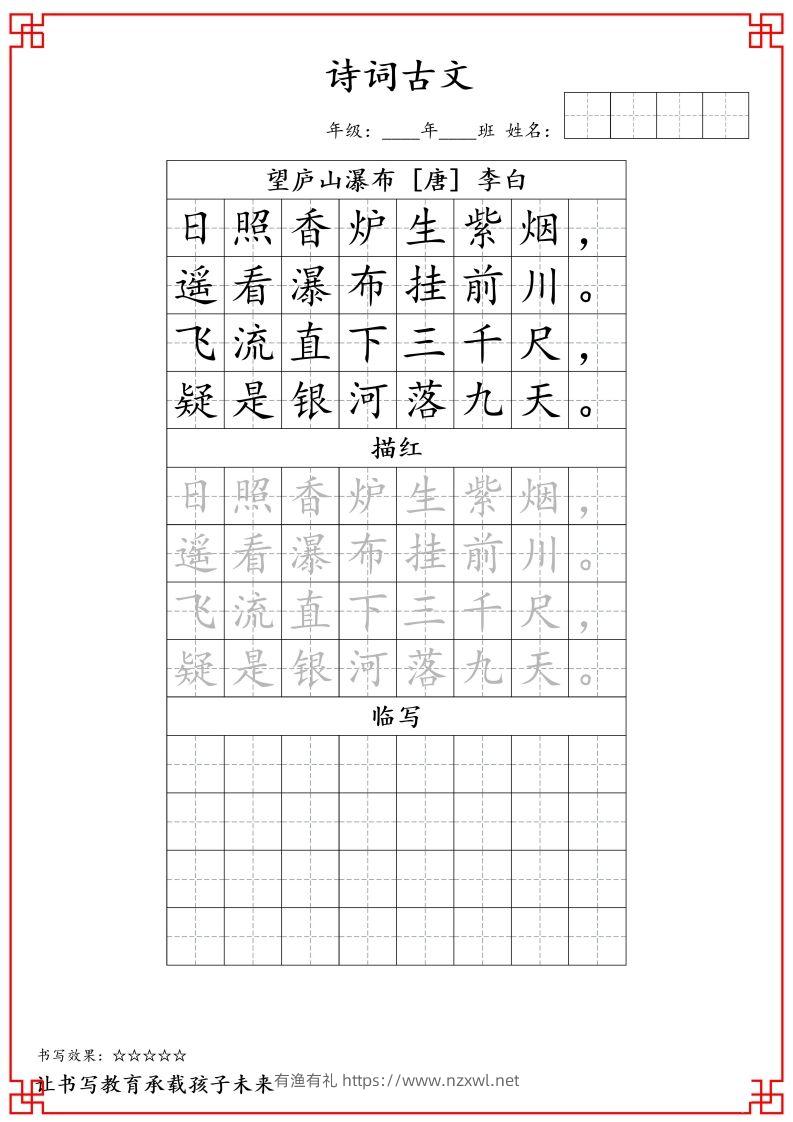 诗词古文
年级：____年____班 姓名：
望庐山瀑布［唐］李白
日照香炉生紫烟，
遥看瀑布挂前川。
飞流直下三千尺，
疑是银河落九天。
描红
日照香炉生紫烟，
遥看瀑布挂前川。
飞流直下三千尺，
疑是银河落九天。
临写
书写效果：☆☆☆☆☆
让书写教育承载孩子未来
有渔有礼 https://www.nzxwl.net